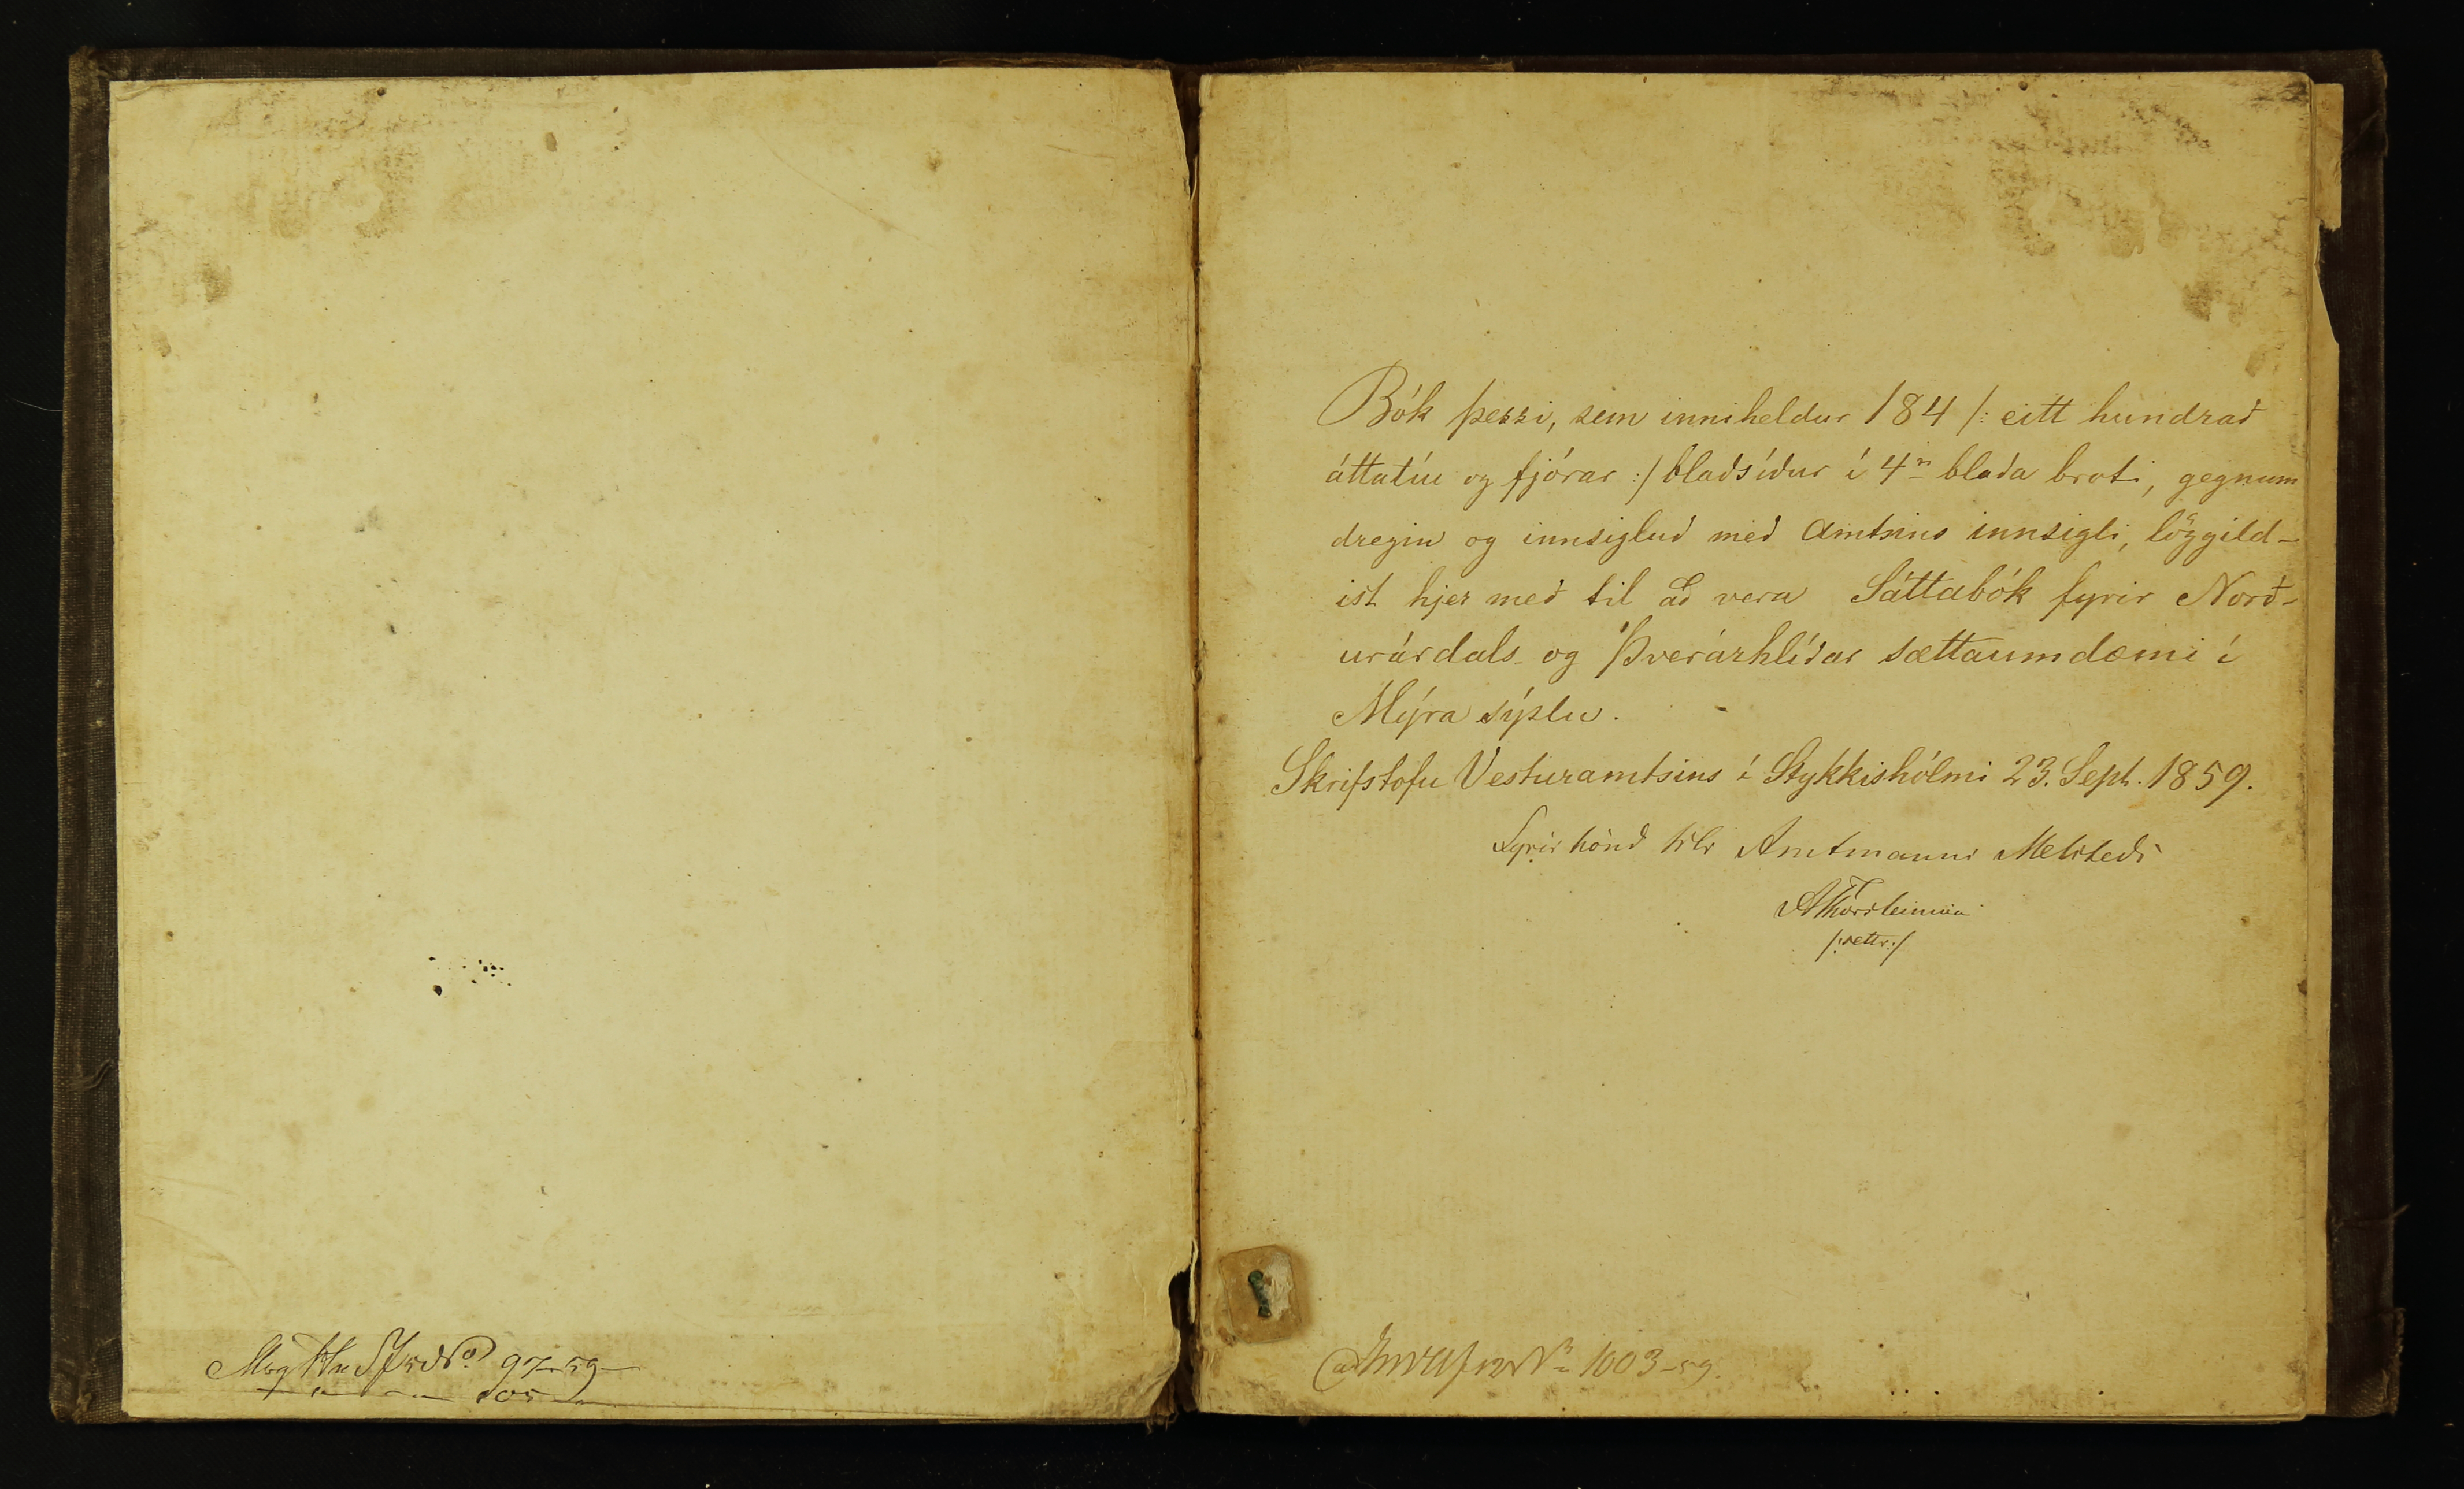 Bók þessi, sem inniheldur 184 /: eitt hundrað
áttatíu og fjórar :/ blaðsíður í 4ra blaða broti, gegnum
dregin og innsigluð með Amtsins innsigli, löggild-
ist hjer með til að vera Sáttabók fyrir Norð-
urárdals- og Þverárhlíðar sættaumdæmi í
Mýra sýslu.
Skrifstofu Vesturamtsins í Stykkishólmi 23. Sept. 1859.
Fyrir hönd Amtmanns Melsteðs
AThorsteinsson
/:settr:/
97-59
No 1003-59.